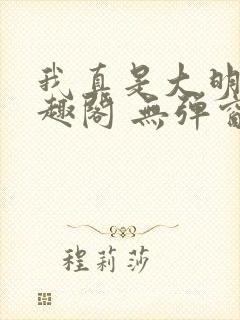 我真是大明
趣閣 無彈窗
程莉莎